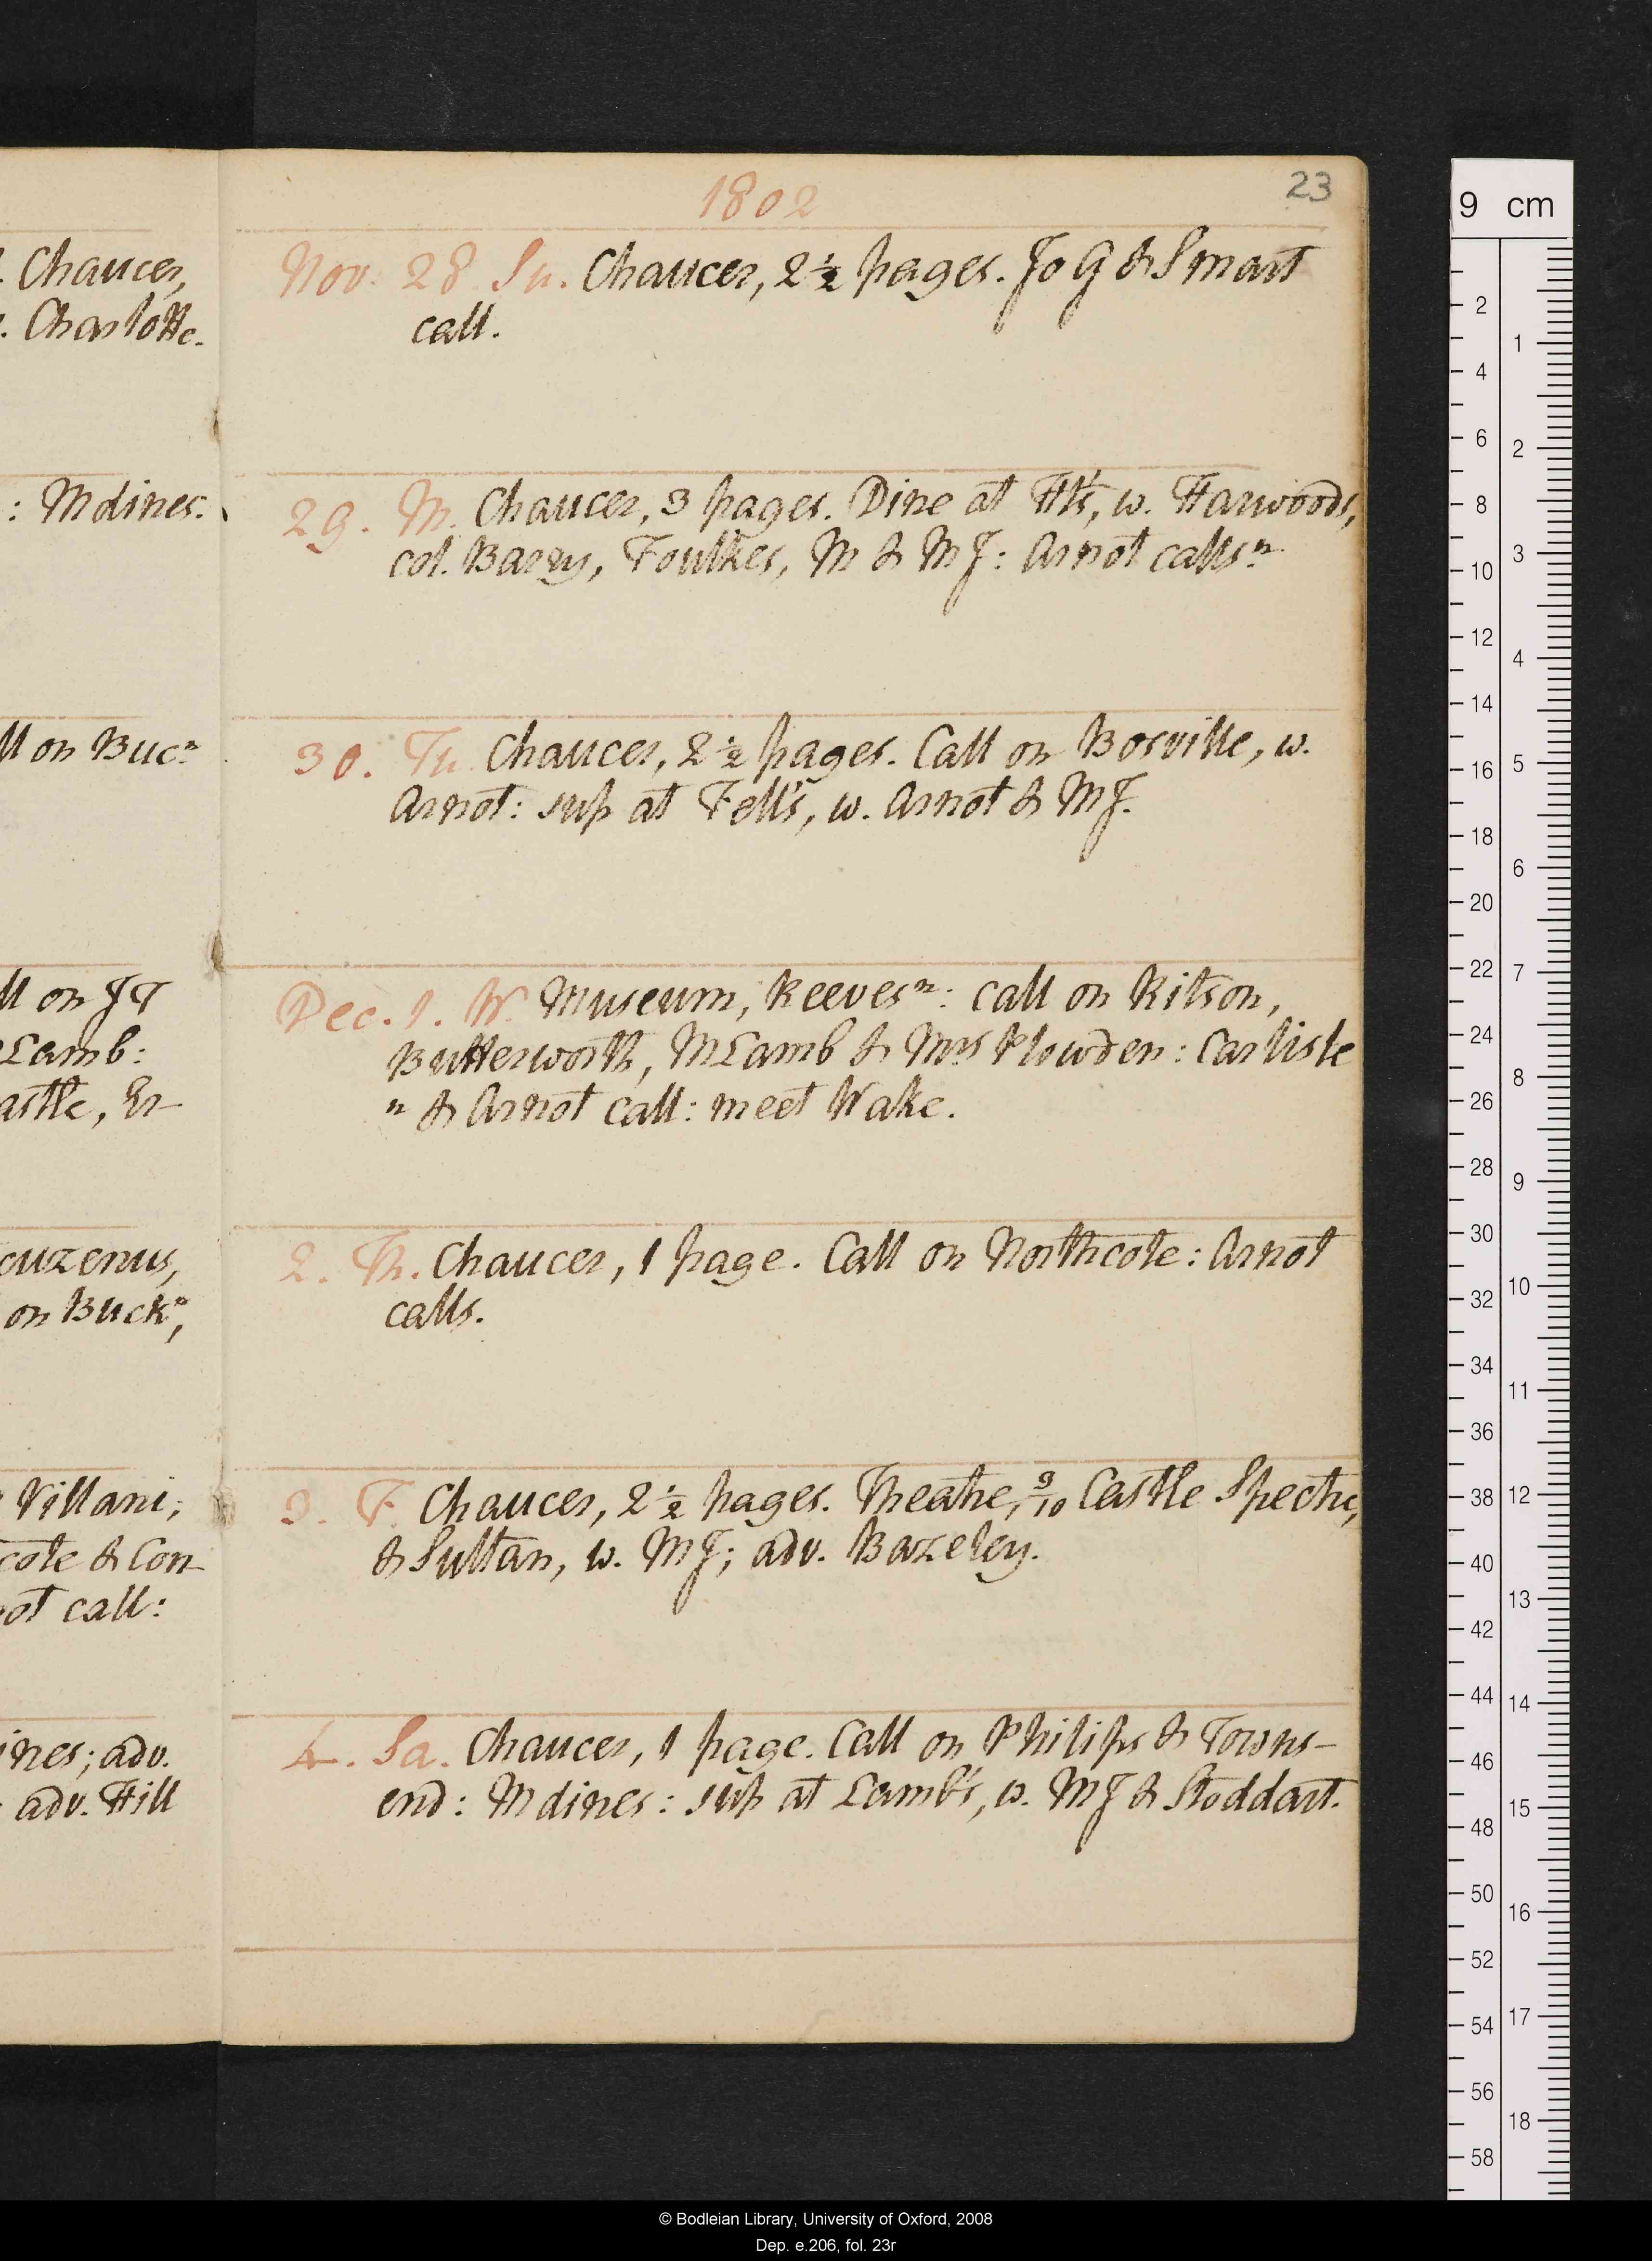 1802
23
Nov. 28. Su. Chaucer, 2 ½ pages. Jo G & Smart
call.
29. M. Chaucer, 3 pages. Dine at Ht's, w. Harwoods,
col. Barry, Foulkes, M & MJ: Arnot calls n.
30. Tu. Chaucer, 2 ½ pages. Call on Bosville, w.
Arnot: sup at Fell's, w. Arnot & MJ.
Dec. 1. W. Museum, Reeves n: call on Ritson,
Butterworth, M Lamb & Mrs Plowden: Carlisle
n & Arnot call: meet Wake.
2. Th. Chaucer, 1 page. Call on Northcote: Arnot
calls.
3. F. Chaucer, 2 ½ pages. Theatre, 3/10 Castle Spectre,
& Sultan, w. MJ; adv. Bazeley.
4. Sa. Chaucer, 1 page. Call on Philips & Towns-
end: M dines: sup at Lamb's, w. MJ & Stoddart.
. Chaucer,
. Charlotte.
: M dines.
ll on Buc n
ll on JT
Lamb:
astle, Er-
cuzenus,
on Buck n,
Villani;
cote & Con-
ot call:
ines; adv.
adv. Hill
9 cm
2
4
6
8
10
12
14
16
18
20
22
24
26
28
30
32
34
36
38
40
42
44
46
48
50
52
54
56
58
1
2
3
4
5
6
7
8
9
10
11
12
13
14
15
16
17
18
© Bodleian Library, University of Oxford, 2008
Dep. e.206, fol. 23r